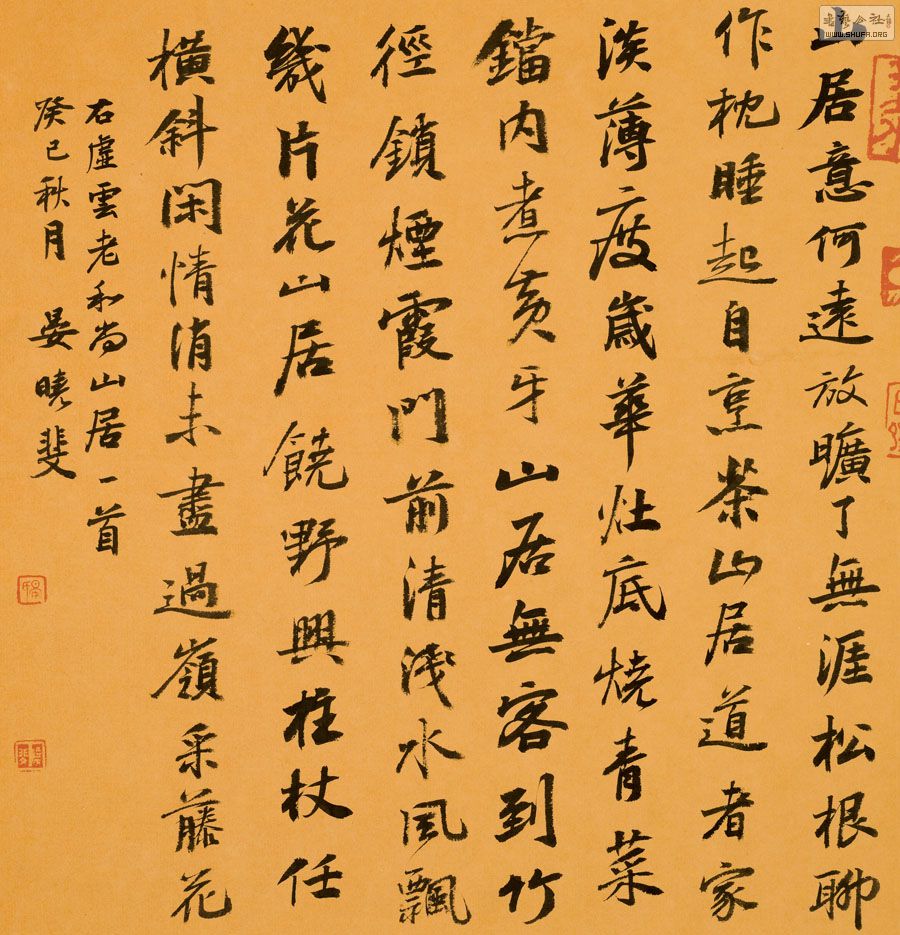 山居意何遠放曠了無涯松根聊
作枕睡起自烹茶山居道者家
淡薄度歲華灶底燒青菜
鐺内煮黃牙山居無客到竹
徑鎖煙霞門前清淺水風飄
幾片花山居饒野興柱杖任
橫斜閑情消未盡過嶺采藤花
右虛雲老和尚山居一首
癸巳秋月 晏曉斐
WWW.SHUFA.ORG